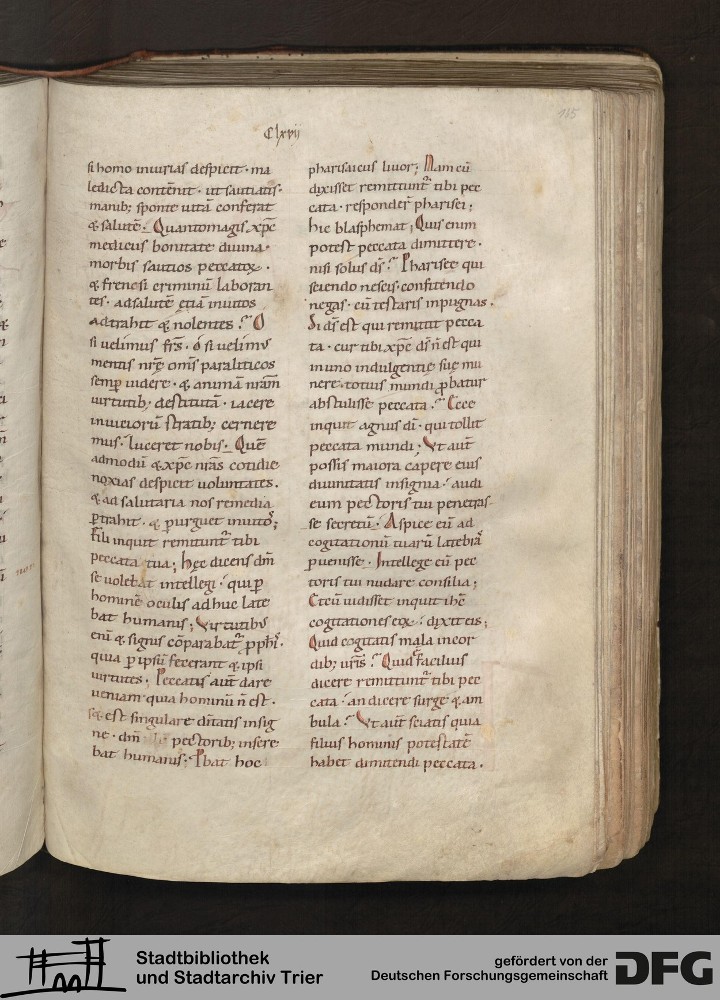 Clxvii
185
si homo iniurias despicit · ma
ledicta contēnit · ut sautiatis·
manib; sponte uitā conferat
& salutē. Quantomagis xp̄c
medicus bonitate diuina·
morbis sautios peccatorꝝ ·
& frenesi criminū laboran
tes · ad salutē etiā inuitos
adtrahit & nolentes? O
si uelimus fr̄s · ó si uelimus
mentis nr̄e om̄s paraliticos
semp̄ uidere · & animā nr̄am
uirtutib; destitutā · iacere
in uiciorū stratib; cernere
mus · luceret nobis. Quē
admodū & xp̄c nr̄as cotidie
noxias despicit uoluntates.
& ad salutaria nos remedia
ꝑtrahit · & ꝑurguet inuitos;
Fili inquit remittunt᷑ tibi
peccata tua; hęc dicens dn̄i
se uolebat intellegi · qui ꝑ
hominē oculis adhuc late
bat humanis; Virtutibus
enī & signis cōparabat᷑ ꝓphis·
quia ꝑ ipsū fecerant & ipsi
uirtutes; Peccatis aūt dare
ueniam quia hominū n̄ est ·
se & est singulare dn̄tatis insig
ne · dm̄ pectorib; insere
bat humanis; Ibat hoc
pharisaicus liuor; Nam cū
dixisset remittunt᷑ tibi pec
cata · responder̄ pharisei;
hic blasphemat; Quis enim
potest peccata dimittere ·
nisi solus ds̄? Pharisee qui
sciendo nescis · confitendo
negas · cū testaris inpugnas ·
Si ds̄ est qui remittit pecca
ta · cur tibi xp̄c ds̄ n̄ est qui
in uno indulgentię suę mu
nere · totius mundi ꝓbatur
abstulisse peccata? Ecce
inquit agnus dī · qui tollit
peccata mundi; Vt aūt
possis maiora capere eius
diuinitatis insignia · audi
eum pectoris tui penetras
se secretū; Aspice eū ad
cogitationū tuarū latebras
ꝑuenisse. Intellege eū pec
toris tui nudare consilia;
Et cū uidisset inquit ihc̄
cogitationes eoꝝ · dixit eis;
Quid cogitatis mala in cor
dib; uris? Quid facilius
dicere remittunt᷑ tibi pec
cata · an dicere surge & am
bula? Vt aūt sciatis quia
filius hominis potestatē
habet dimittendi peccata ·
Stadtbibliothek
und Stadtarchiv Trier
gefördert von der
Deutschen Forschungsgemeinschaft
DFG